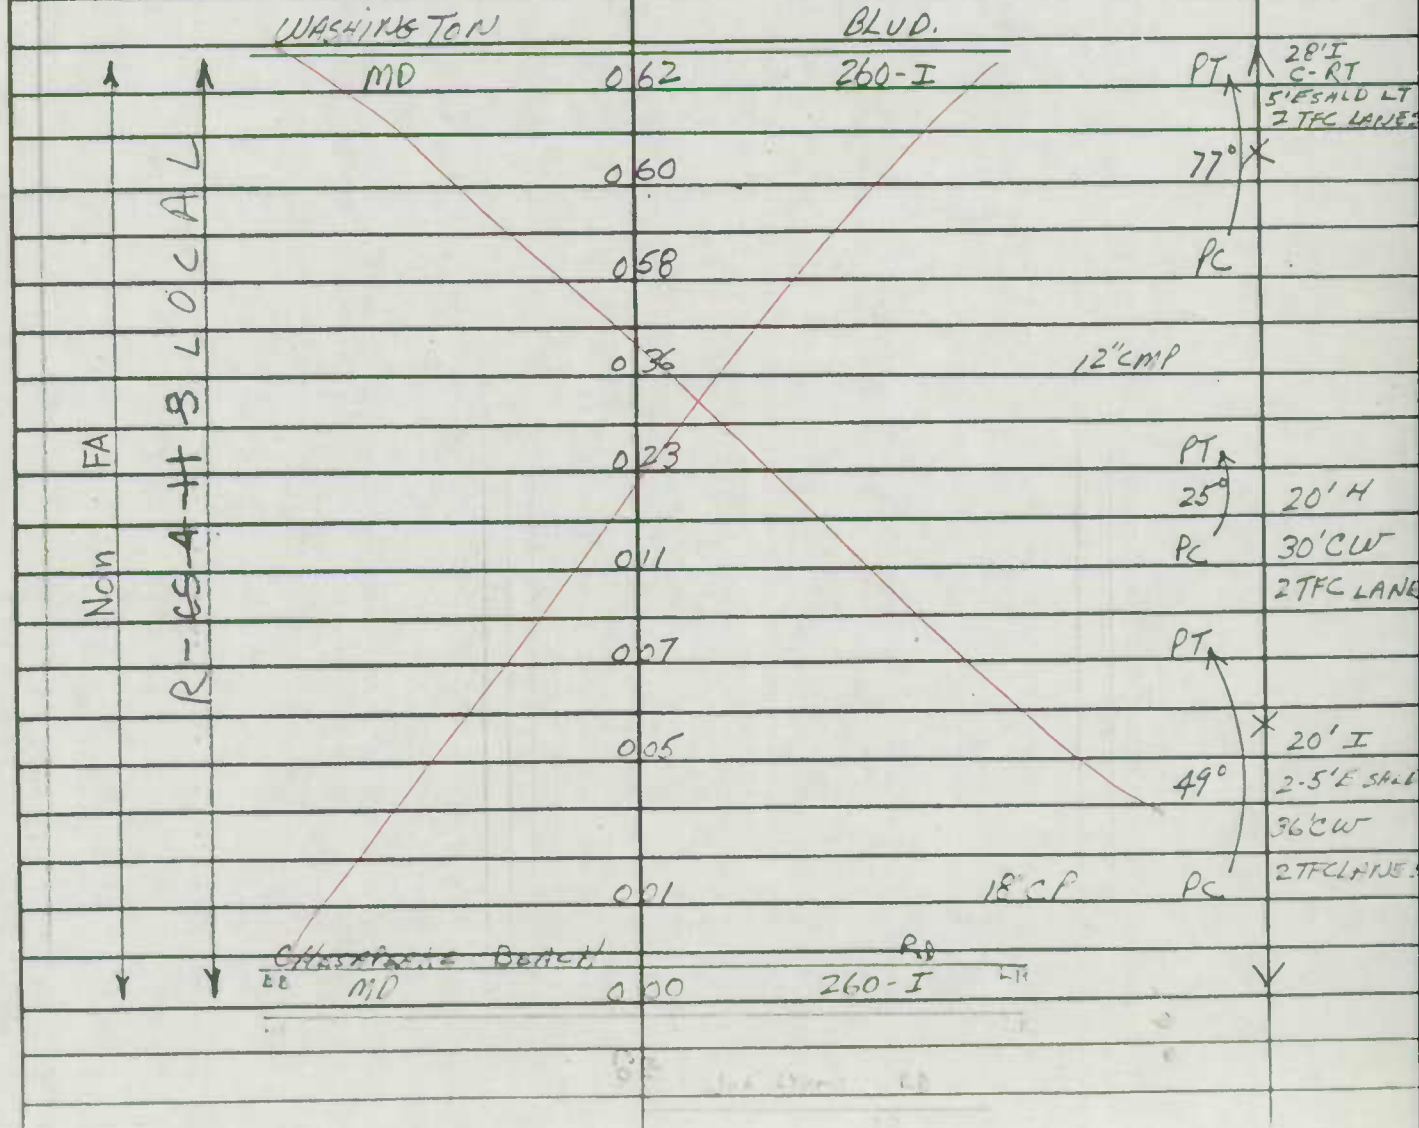 WASHINGTON BLVD.
MD 0.62 260-I PT 28' I
C-RT
5' E SHLD LT
2 TFC LANES
0.60 77°
0.58 PC
0.36 12" CMP
0.23 PT
25° 20' H
0.11 PC 30' CW
2 TFC LANE
0.07 PT
0.05 20' I
49° 2-5' E SHLD
36' CW
2 TFC LANES
0.01 18" CP PC
CHESAPEAKE BEACH RD
MD 0.00 260-I
Non FA
LOCAL